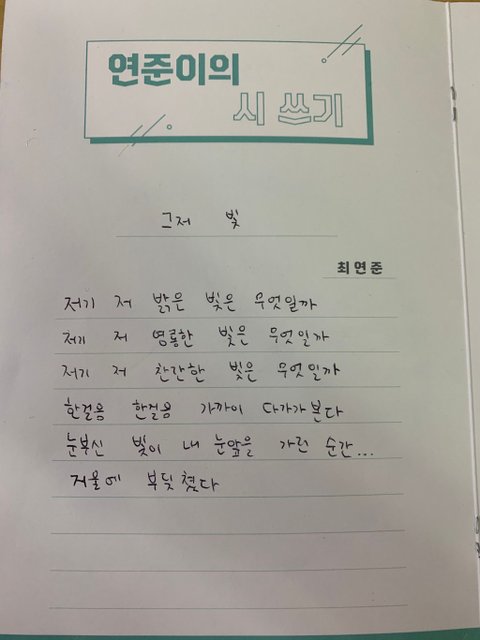 연준이의
시 쓰기
그저 빛
최연준
저기 저 밝은 빛은 무엇일까
저기 저 영롱한 빛은 무엇일까
저기 저 찬란한 빛은 무엇일까
한걸음 한걸음 가까이 다가가본다
눈부신 빛이 내 눈앞을 가린 순간...
거울에 부딪쳤다